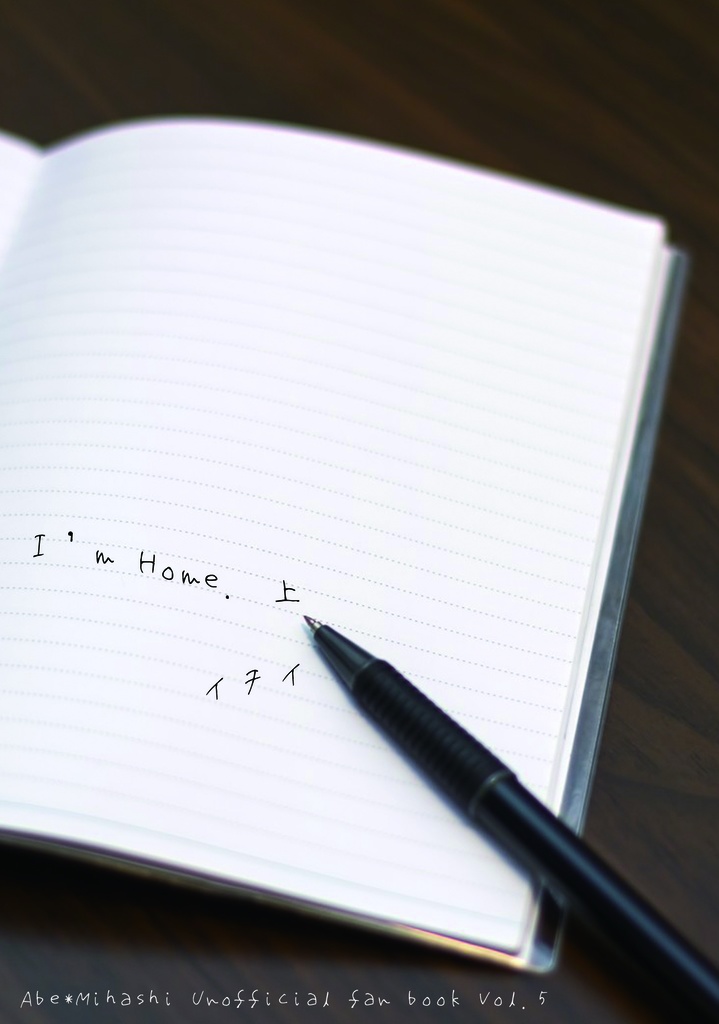 I'm Home. 上
イチイ
Abe*Mihashi Unofficial fan book Vol. 5